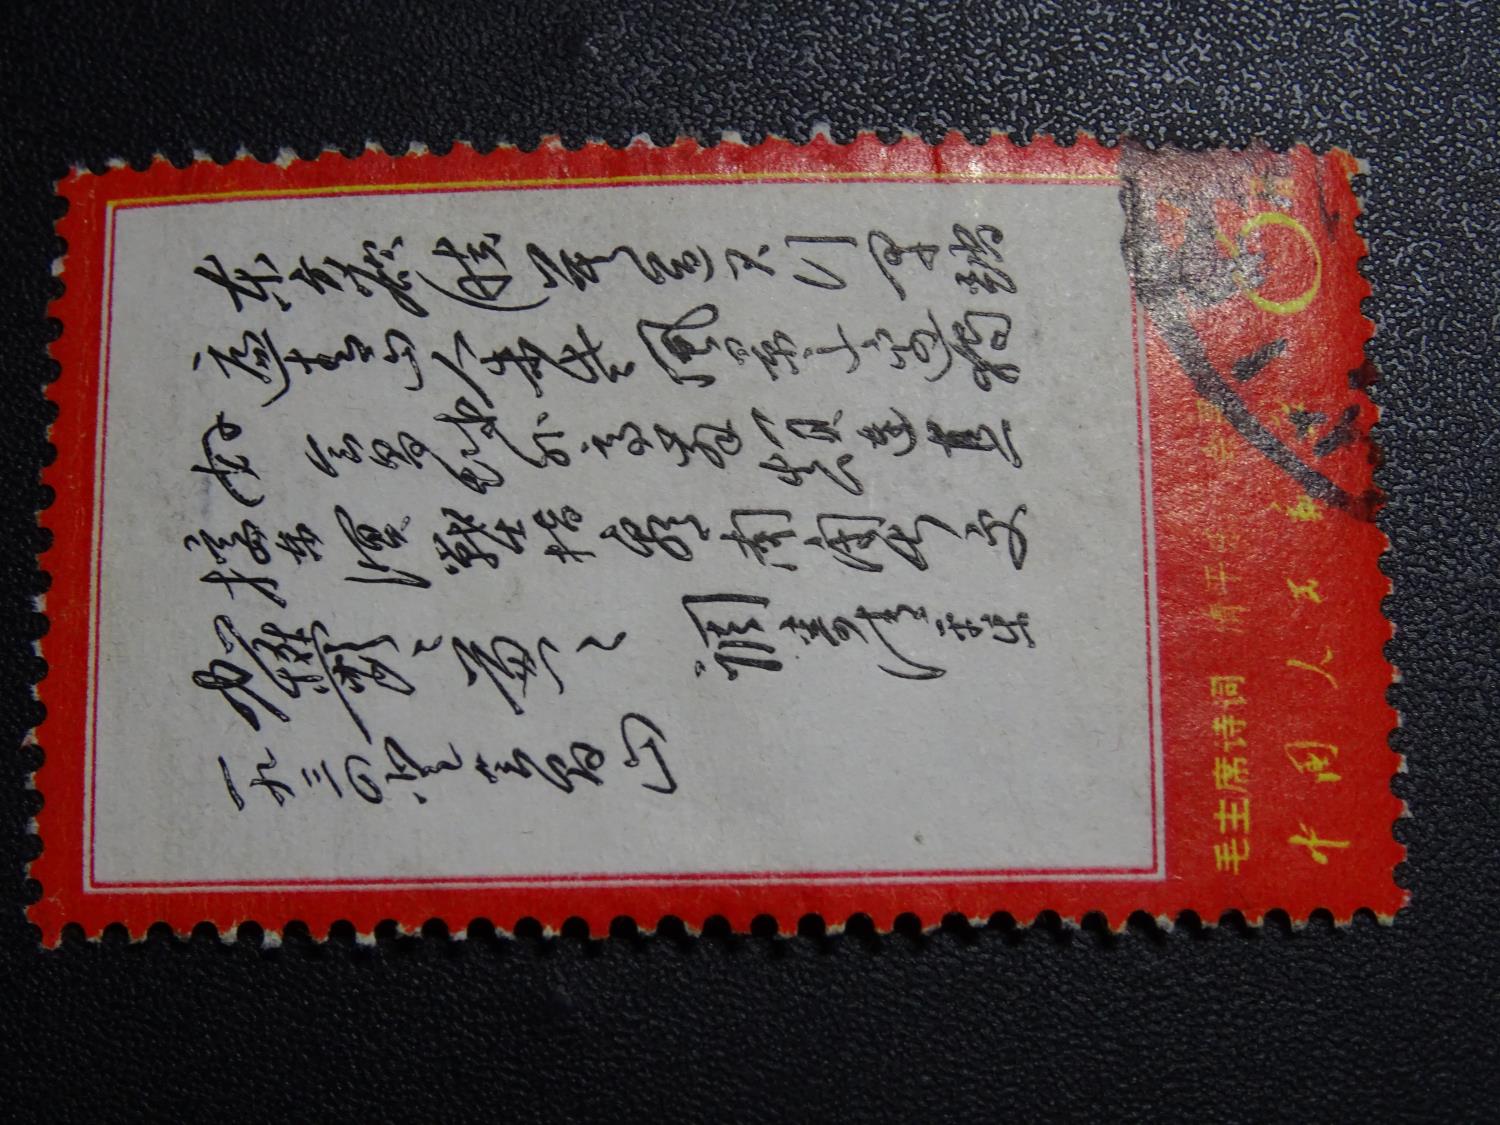 东方欲晓莫道君行早踏
遍青山人未老风景这边独
好会昌城外高峰颠连直
接东溟战士指看南粤更
加郁々葱々 调寄清平乐
一九三四登会昌山
毛主席诗词 清平乐 会昌
中国人民邮 8分